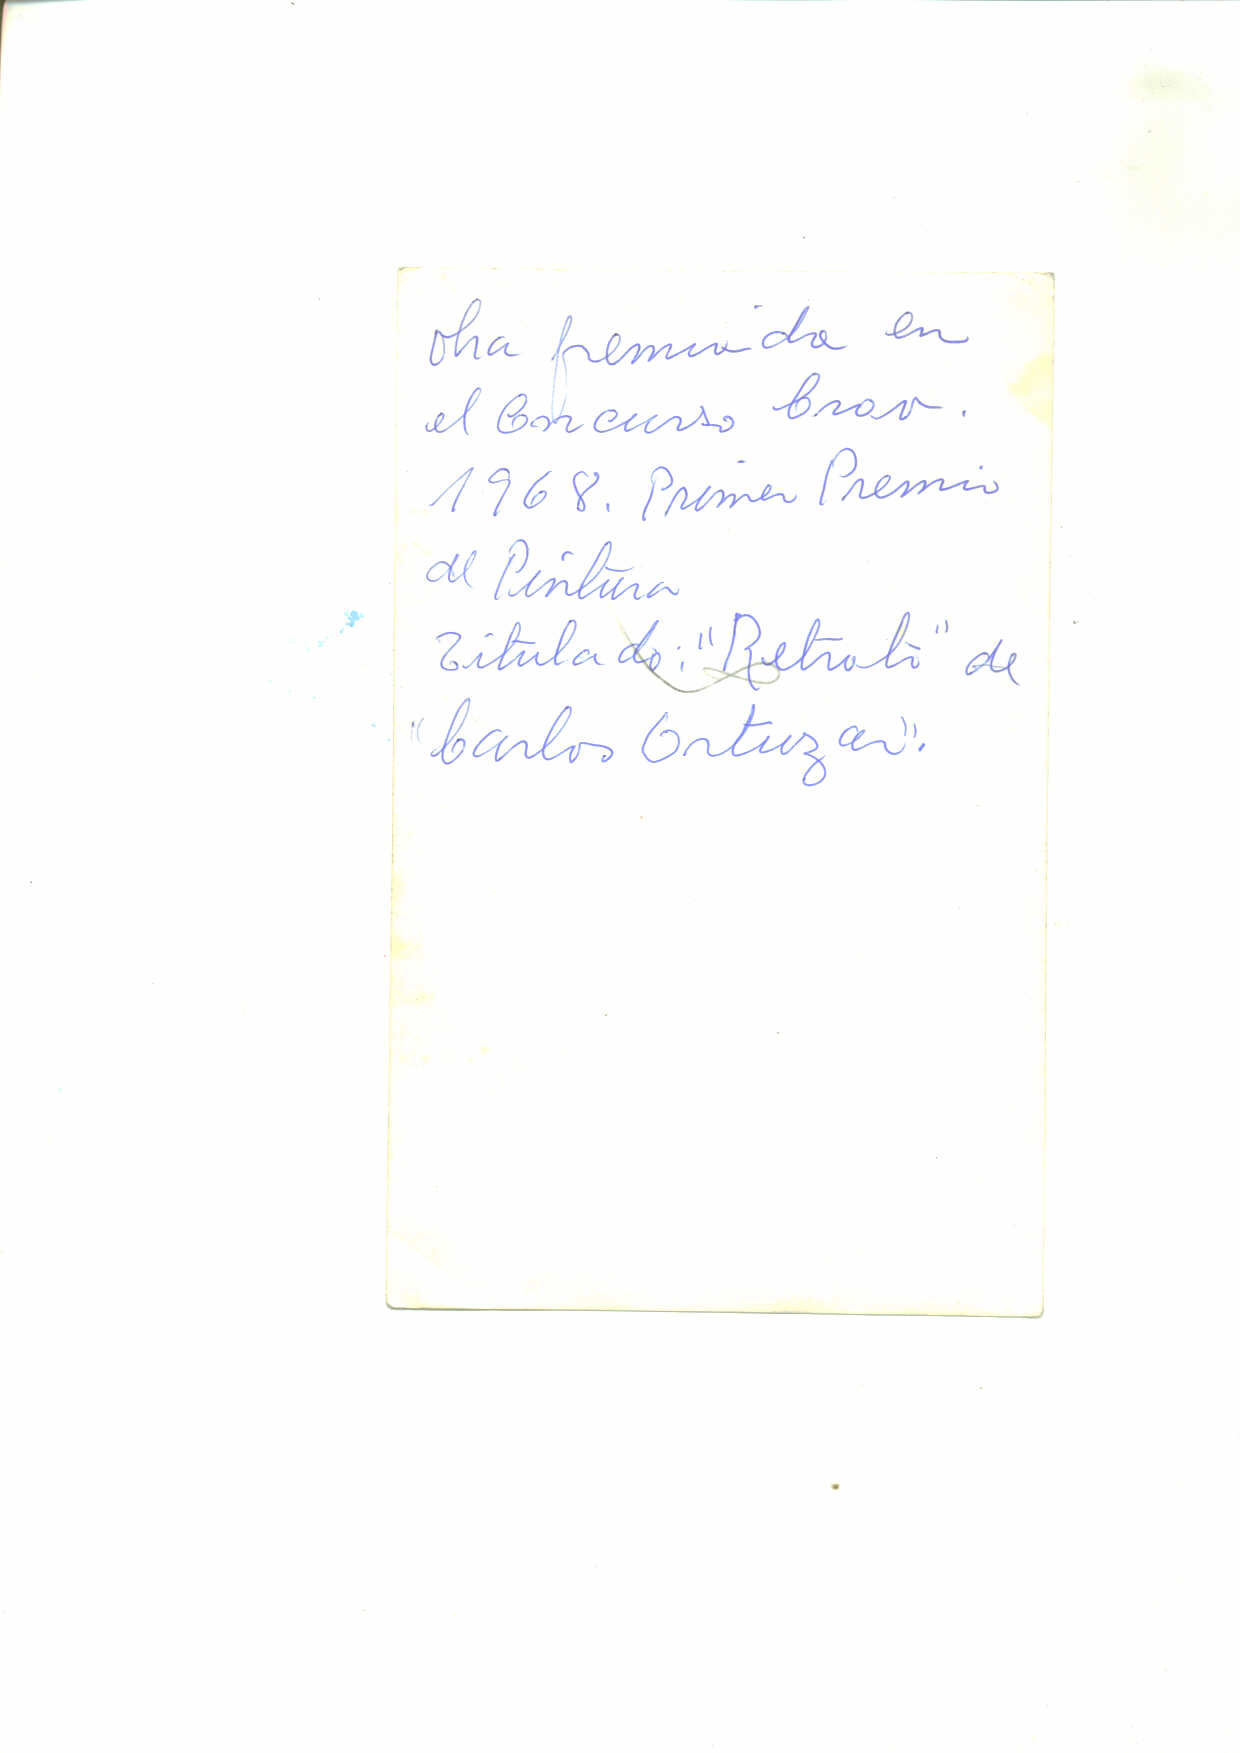 Obra premiada en
el Concurso Crav.
1968. Primer Premio
de Pintura
Titulado: "Retrato" de
"Carlos Ortuzar".